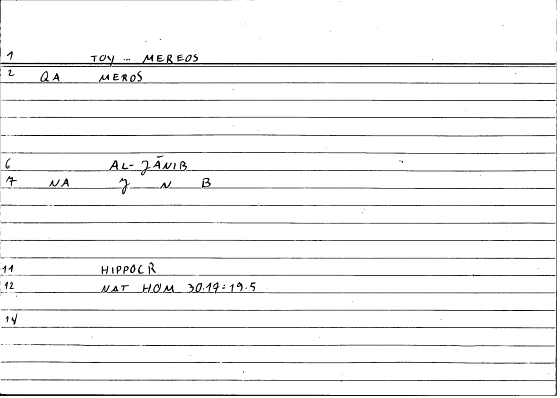 1 TOY … MEREOS
2 QA MEROS
6 AL-JĀNIB
7 NA J N B
11 HIPPOCR
12 NAT HOM 30.19:19.5
14